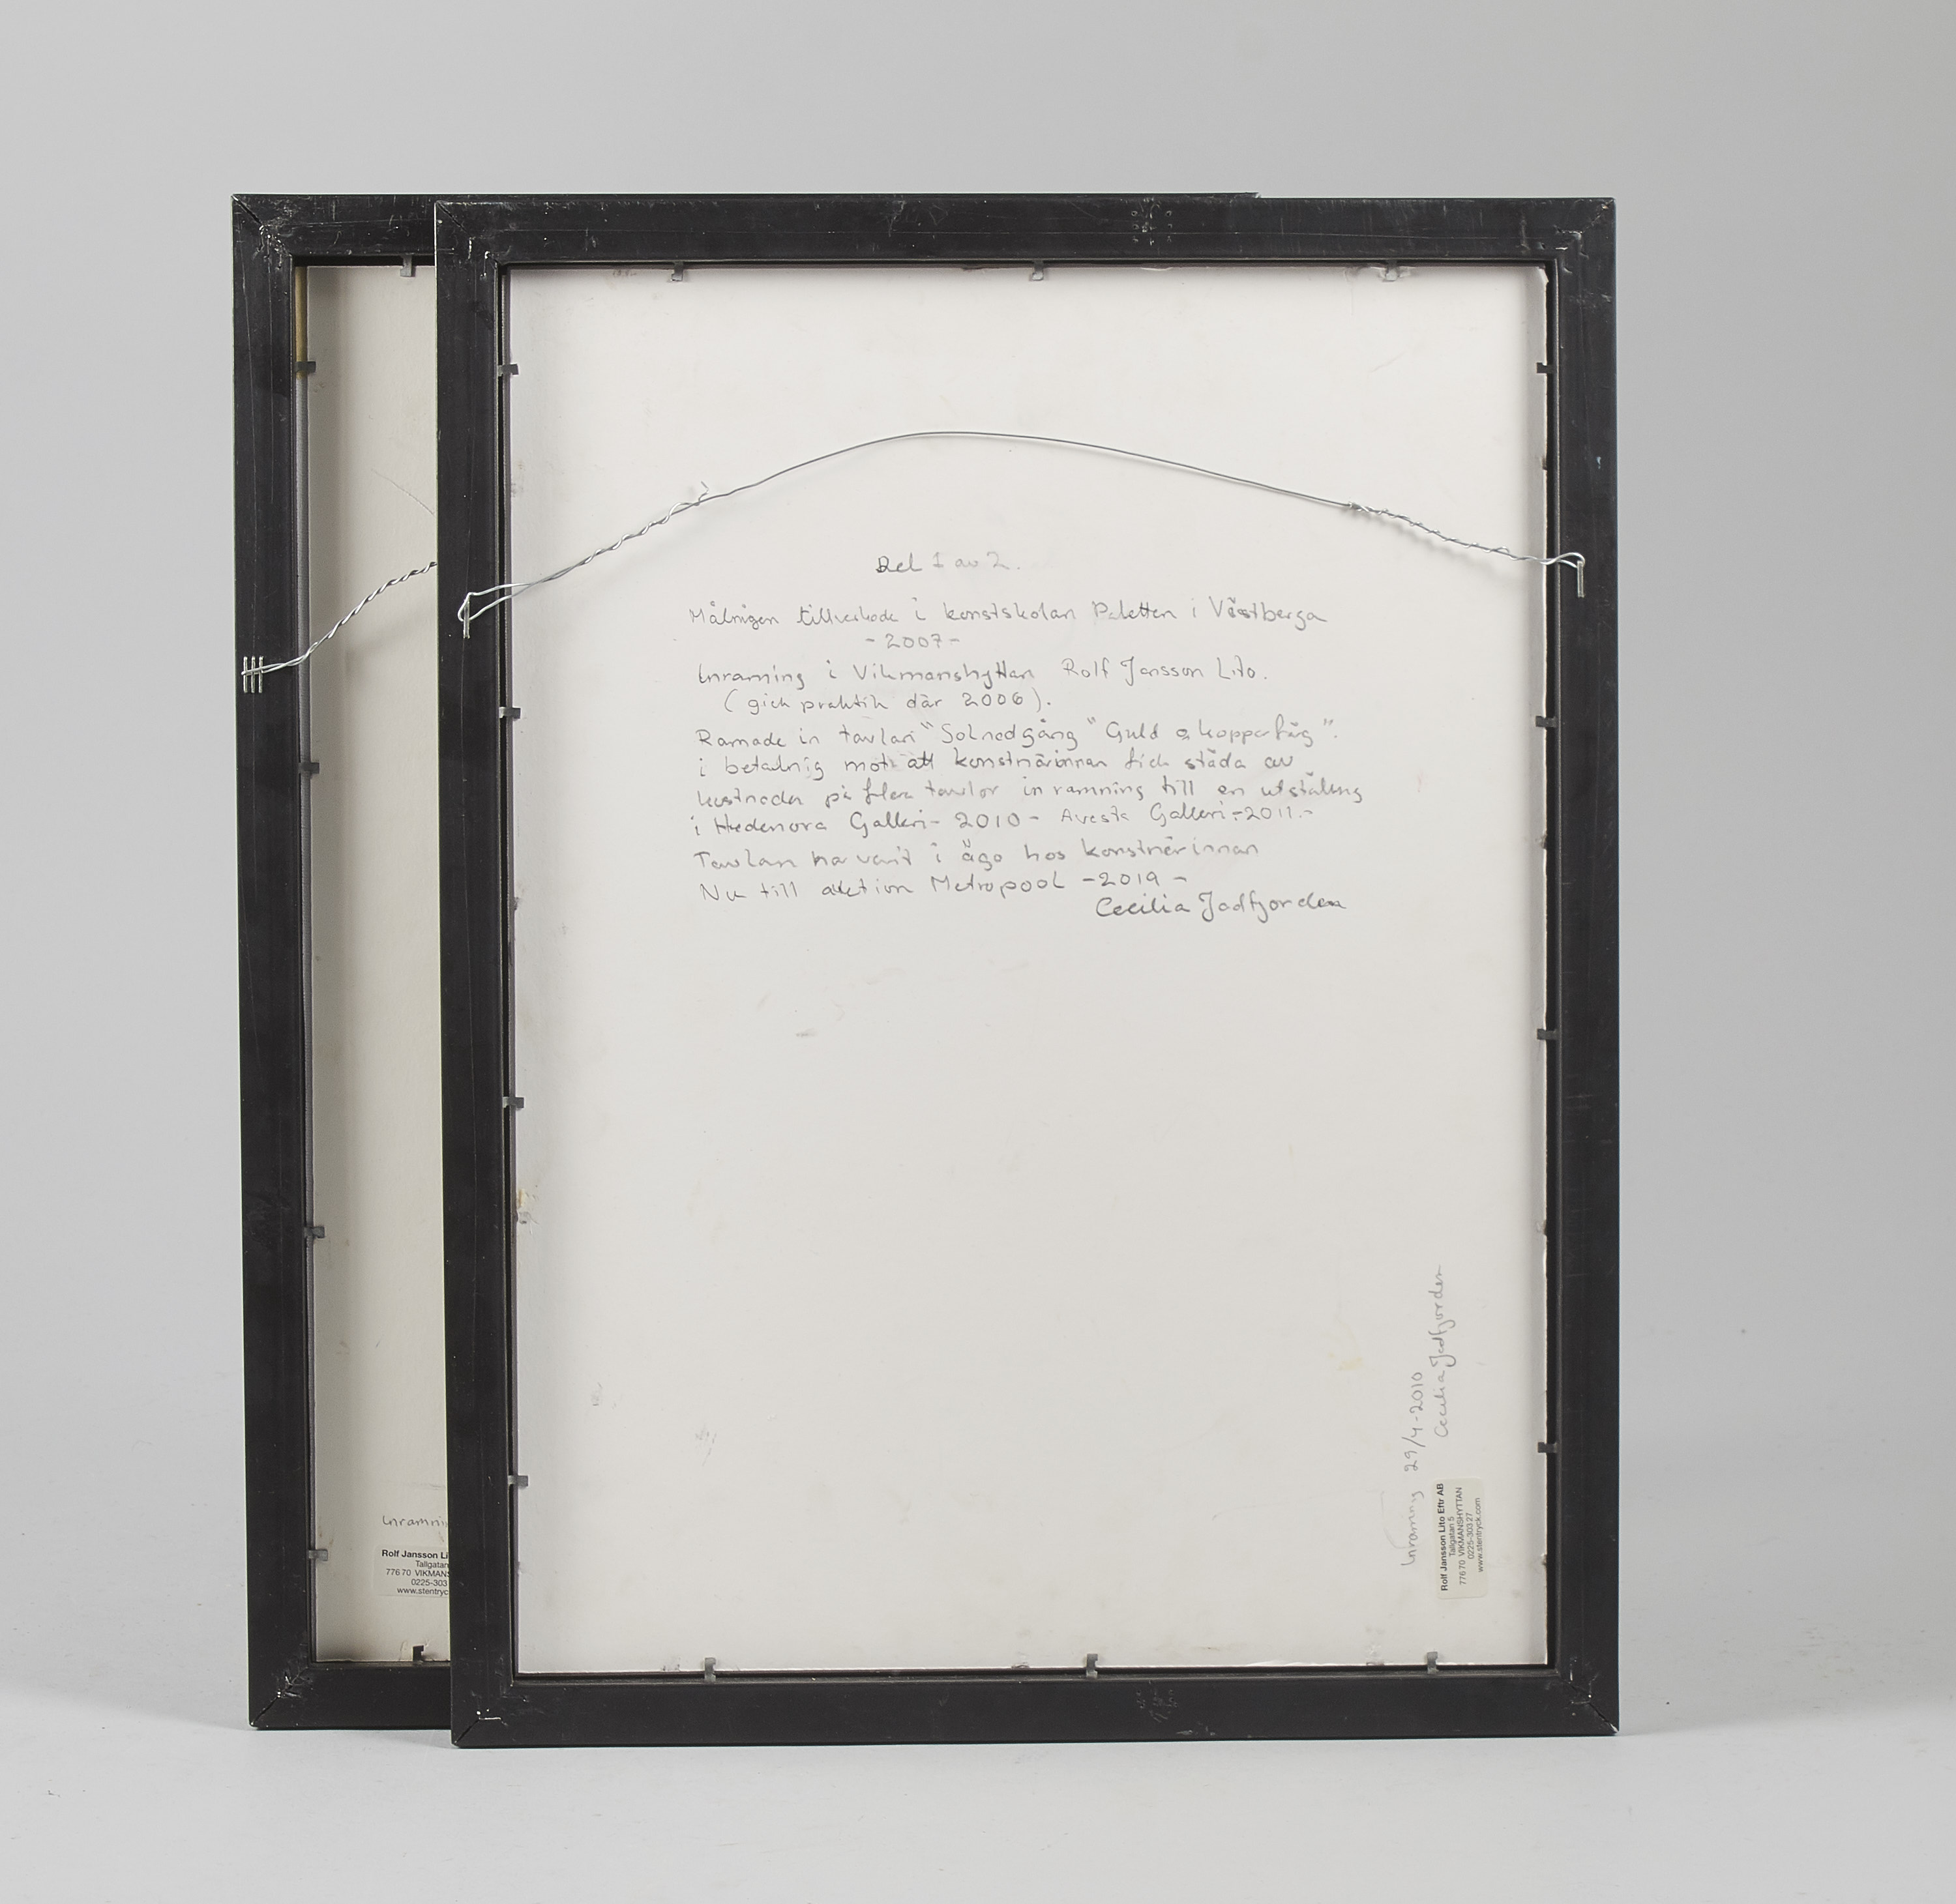 Del 1 av 2.
Målnigen tillverkade i konstskolan Paletten i Västberga
- 2007 -
Inramning i Vikmanshyttan Rolf Jansson Lito.
( gick praktik där 2006 ).
Ramade in tavlan "Solnedgång" Guld o kopparfärg".
i betalnig mot att konstnärinnan fick städa av
kostnader på flera tavlor in ramning till en utställing
i Hedemora Galleri - 2010 - Avesta Galleri - 2011. -
Tavlan har varit i ägo hos konstnärinnan
Nu till auktion Metropool - 2019 -
Cecilia Jodfjorden
Inramning 29/4 - 2010
Cecilia Jodfjorden
Rolf Jansson Lito Eftr AB
Tallgatan 5
776 70 VIKMANSHYTTAN
0225-303 27
www.stentryck.com
Inramni
Rolf Jansson Li
Tallgatan
776 70 VIKMANS
0225-303
www.stentryc